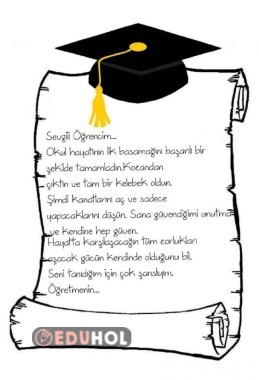 Sevgili Öğrencim...
Okul hayatının ilk basamağını başarılı bir
şekilde tamamladın.Kozandan
çıktın ve tam bir kelebek oldun.
Şimdi kanatlarını aç ve sadece
yapacaklarını düşün. Sana güvendiğimi unutma
ve kendine hep güven.
Hayatta karşılaşacağın tüm zorlukları
aşacak gücün kendinde olduğunu bil.
Seni tanıdığım için çok şanslıyım.
Öğretmenin...
EDUHOL